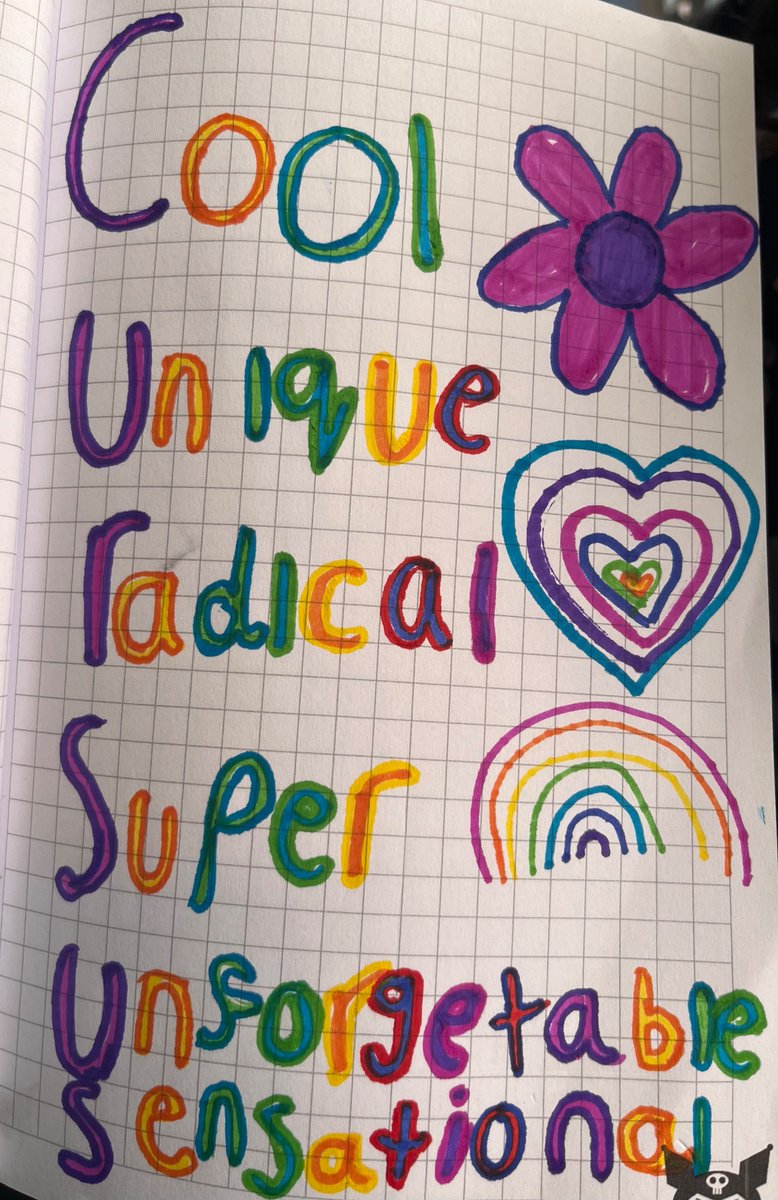 Cool
Unique
radical
Super
Unforgetable
Sensational